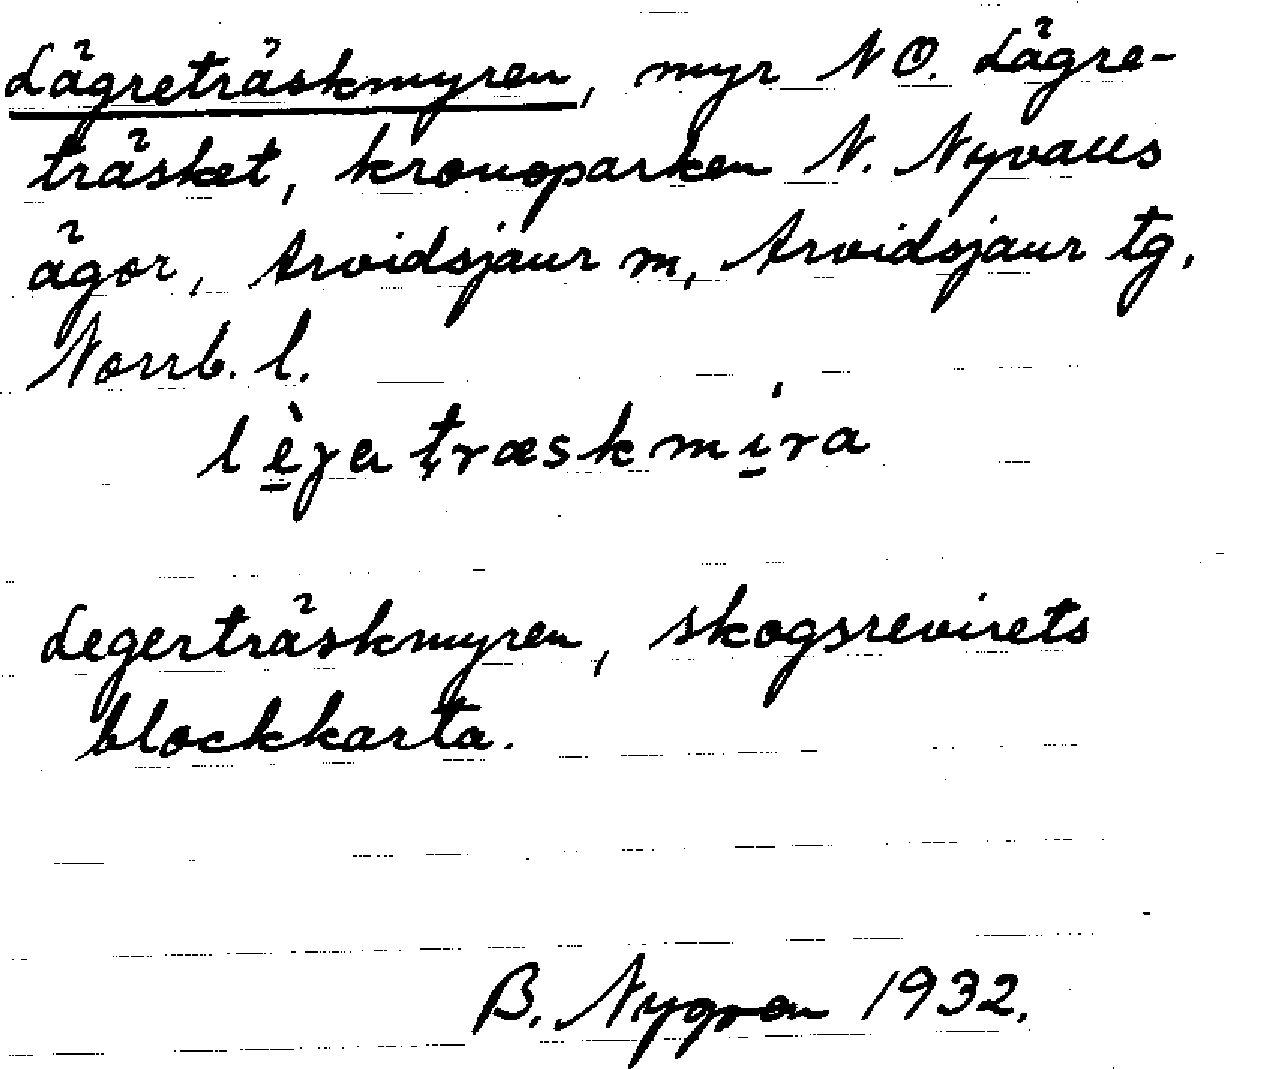 Lägreträskmyren, myr N O. Lägre-
träsket, kronoparken N. Nyvalls
ägor, Arvidsjaur sn, Arvidsjaur tg.
Norrb. l.
lèɡ̱ertræskmi̱ra
Legerträskmyren, skogsrevirets
blockkarta.
B. Nygren 1932.